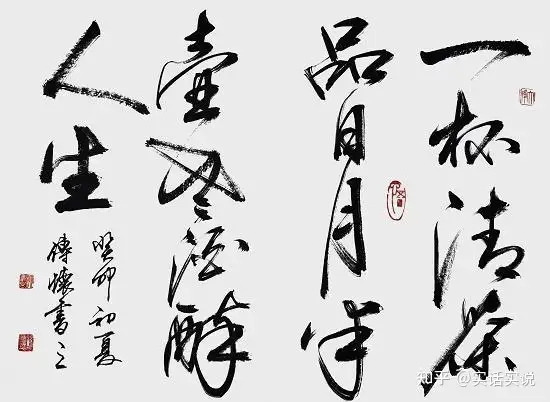 一杯清茶
品日月半
壶老酒醉
人生
癸卯初夏
傅懷書之
知乎 @实话实说